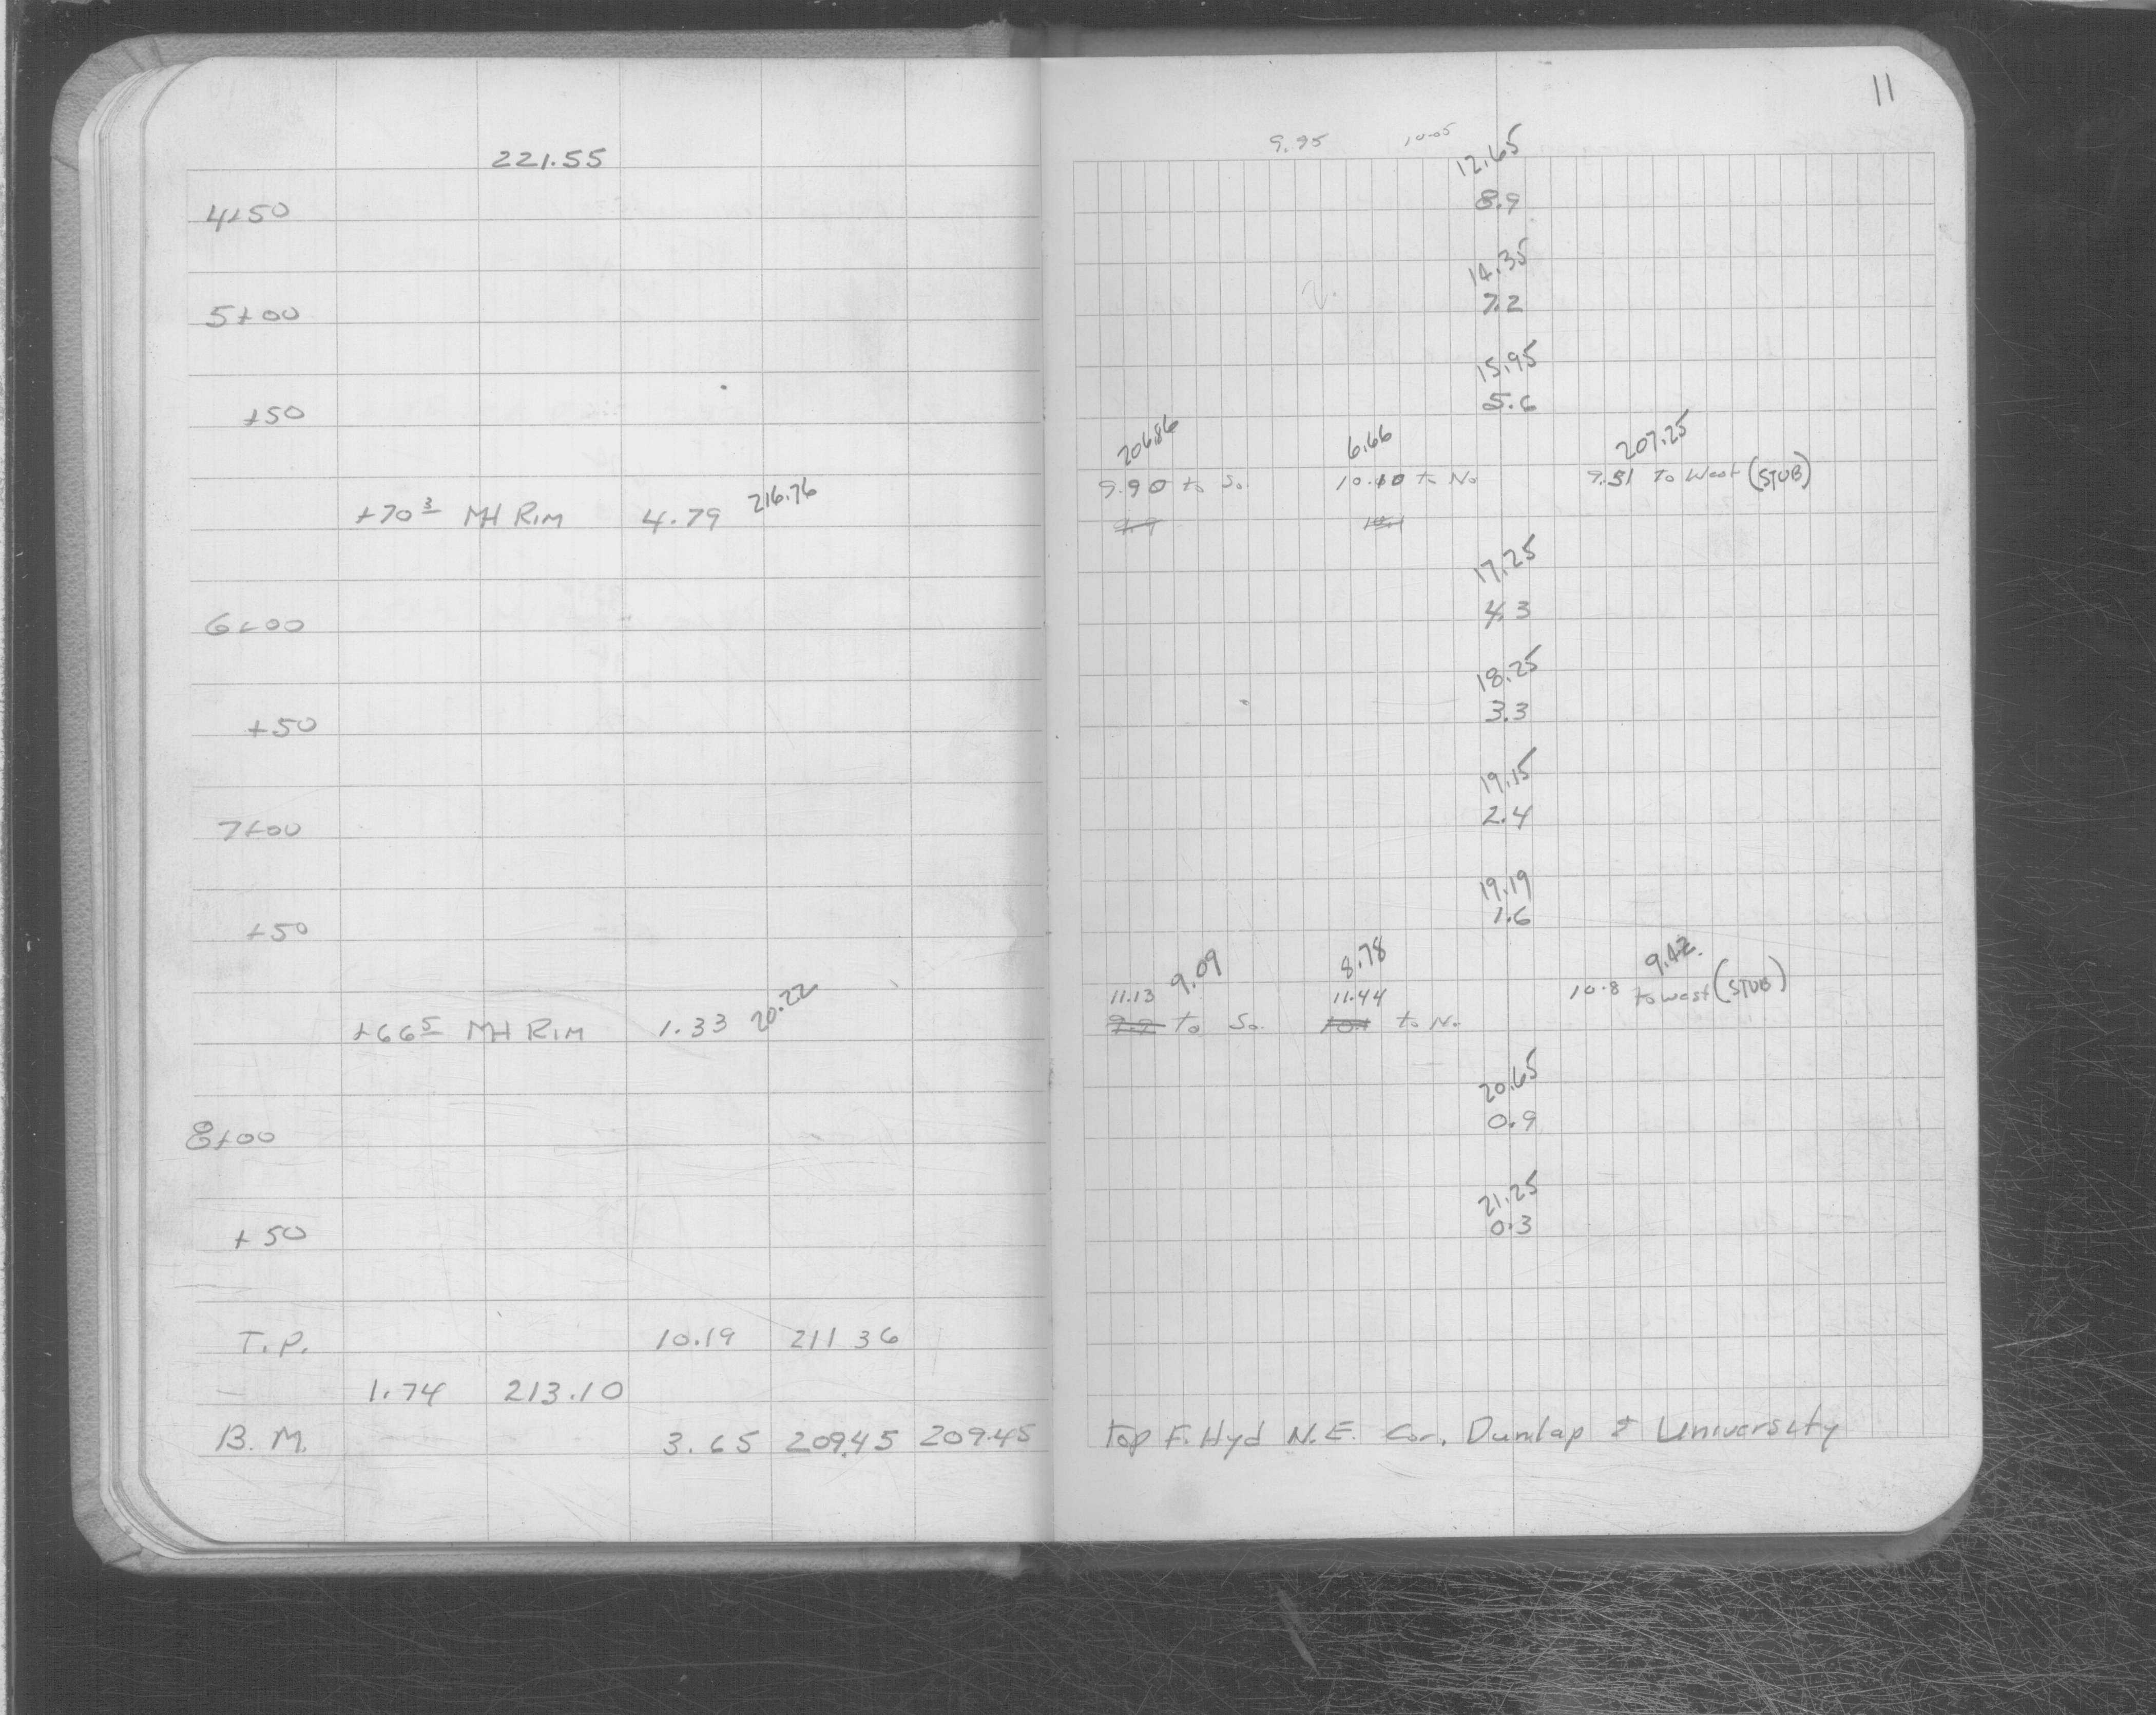 11
221.55 9.95 10.05 12.65
4+50 8.9
14.35
5+00 7.2
15.95
+50 5.6
206.86 6.66 207.25
9.90 to So. 10.10 to No 9.51 to West (STUB)
+70 3 MH RIM 4.79 216.76 9.9 10.1
17.25
6+00 4.3
18.25
+50 3.3
19.15
7+00 2.4
19.19
+50 1.6
9.09 8.78 9.42
11.13 11.44 10.8 to west (STUB)
+66 5 MH RIM 1.33 20.22 to So. to No
20.65
8+00 0.9
21.25
+50 0.3
T.P. 10.19 211 36
1.74 213.10
B.M. 3.65 209.45 209.45 Top F. Hyd N.E. Cor. Dunlap & University